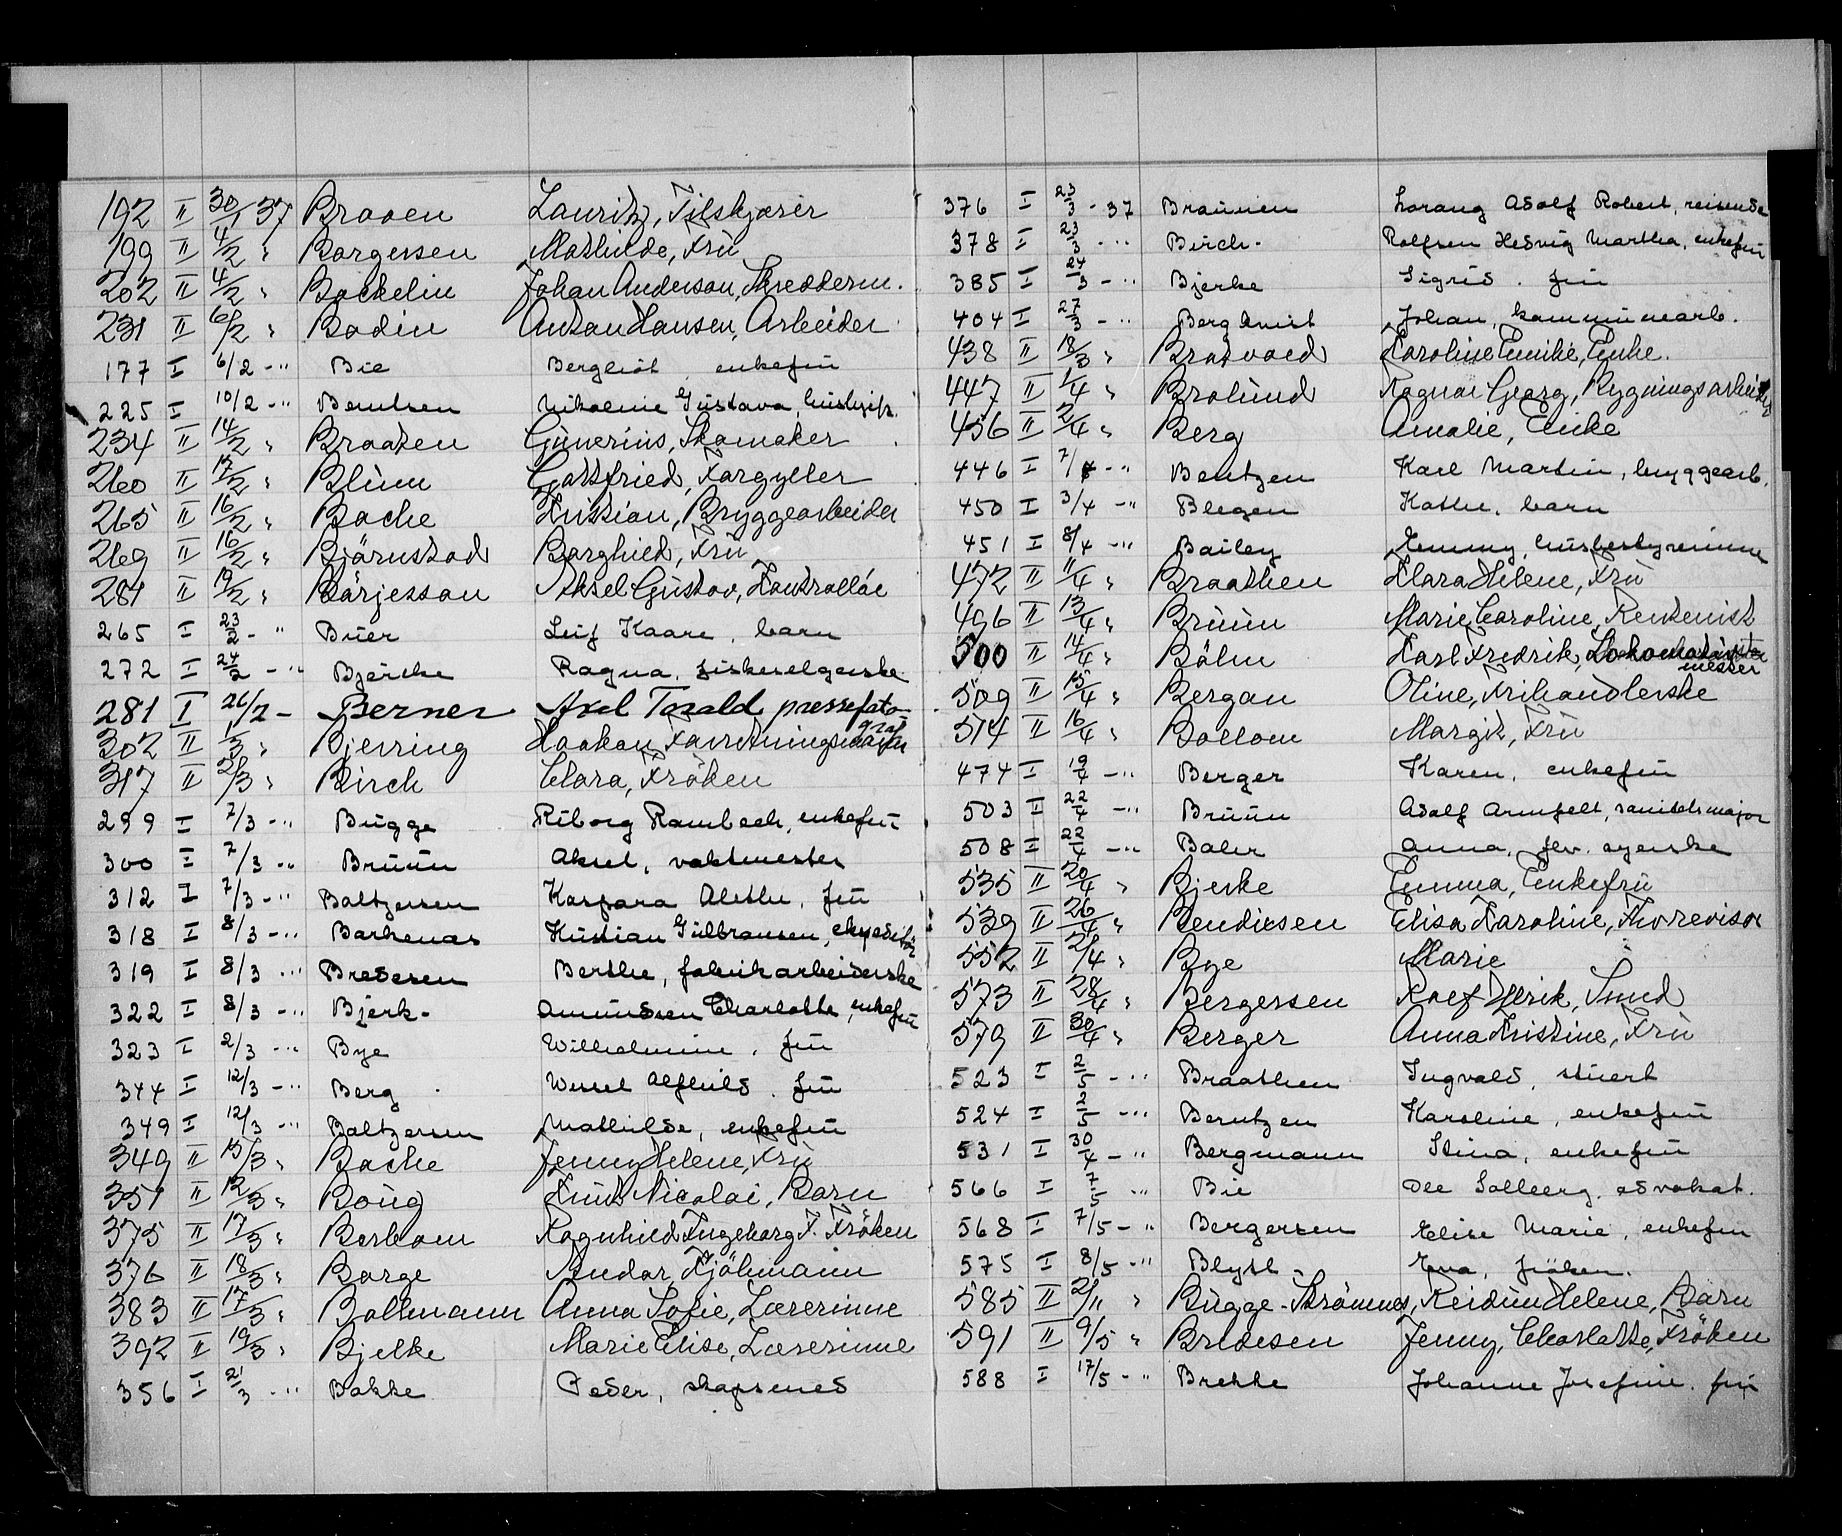 192 II 30/1 37 Braaen Lauritz, Filskjærer
199 II 4/2 " Borgersen Mathilde, Fru
202 II 4/2 " Bockelie Johan Anderson, Skredderm.
231 II 6/2 " Bodin Anton Hansen, Arbeider
177 I 6/2 - " Bie Bergliot enkefru
225 I 10/2 - " Berntsen Nikoline Gustava,
234 II 14/2 " Braaten Gunerius, Skomaker
260 II 17/2 " Blum Gottfried, Forgyller
265 II 16/2 " Bache Kristian, Bryggearbeider
269 II 16/2 " Bjärnstad Borghild, Fru
281 II 19/2 " Börjesson Aksel Gustav, Kontrollør
265 I 23/2 - " Buer Leif Kaare, barn
272 I 24/2 - " Bjercke Ragna, fiskeselgerske
281 I 26/2 - Berner Axel Torald pressefotograf
302 II 1/3 " Bjerring Haakon, Forretningsfører
317 II 2/3 " Birch Clara, Fröken
299 I 7/3 - " Bugge Riborg Rambech, enkefru
300 I 7/3 - " Bruun Aksel, vaktmester
312 I 7/3 - " Baltzersen Kaspara Alethe, fru
318 I 8/3 - " Barkenæs Kristian Gulbransen, ekspeditør
319 I 8/3 - " Bredesen Berthe, fabrikarbeiderske
322 I 8/3 - " Bjerk - Amundsen Charlotte, enkefru
323 I 2/3 - " Bye Wilhelmine, fru
344 I 12/3 - " Berg Wessel Alfhild, fru
349 I 12/3 - " Baltzersen Mathilde, enkefru
349 II 15/3 " Bache Jenny Helene, Fru
351 II 12/3 " Boug Knut Nicolai, Barn
375 II 17/3 " Borbom Ragnhild Ingeborg F. Fröken
376 II 18/3 " Borge Reidar, Kjöbmann
383 II 17/3 " Bollmann Anna Sofie, Lærerinne
392 II 19/3 " Bjelke Marie Elise, Lærerinne
356 I 21/3 - " Bakke Peder, skapsmed
376 I 23/3 - 37 Braunen Lorang Adolf Robert, reisende
378 I 23/3 - " Birch - Rolfsen Hedvig Martha, enkefru
385 I 24/3 - " Bjerke Sigrid, fru
404 I 27/3 - " Bergkvist Johan, kommunearb.
438 II 18/3 " Bratvold Karoline Emilie, Enke.
447 II 1/4 " Brolund Ragnar Georg, Bygningsarbeider
456 II 2/4 " Berg Amalie, Enke
446 I 7/4 - " Bentzen Karl Martin, bryggearb.
450 I 3/4 - " Bergen Kathe, barn
451 I 8/4 - " Bailey Jenny, husbestyrerinne
472 II 11/4 " Braathen Klara Helene, Fru
496 II 13/4 " Bruun Marie Caroline, Rentenist
500 II 14/4 " Bölm Karl Fredrik, Lokomotivmester
509 II 15/4 " Bergan Oline, Frihandlerske
514 II 16/4 " Bollom Margit, Fru
474 I 19/4 - " Berger Karen, enkefru
503 I 22/4 - " Bruun Adolf Armfelt, sanitetsmajor
508 I 22/4 - " Baler Anna, fhv. syerske
535 II 20/4 " Bjerke Emma, Enkefru
539 II 26/4 " Bendixsen Elisa Karoline, Fhv revisor
552 II 2/4 " Bye Marie
573 II 28/4 " Bergersen Rolf Henrik, Smed
579 II 30/4 " Berger Anna Kristine, Fru
523 I 2/5 - " Braathen Ingvald, stuert
524 I 2/5 - " Berntzen Karoline, enkefru
531 I 30/4 - " Bergmann Stina, enkefru
566 I 7/5 " Bie Ole Solberg, advokat.
568 I 7/5 - " Bergersen Elise Marie, enkefru
575 I 8/5 - " Blytt - Eva, frøken.
585 II 2/11 " Bugge - Strömnes, Reidun Helene, Barn
591 II 9/5 " Bredesen Jenny, Charlotte, Fröken
588 I 17/5 - " Brekke Johanne Josefine, fru